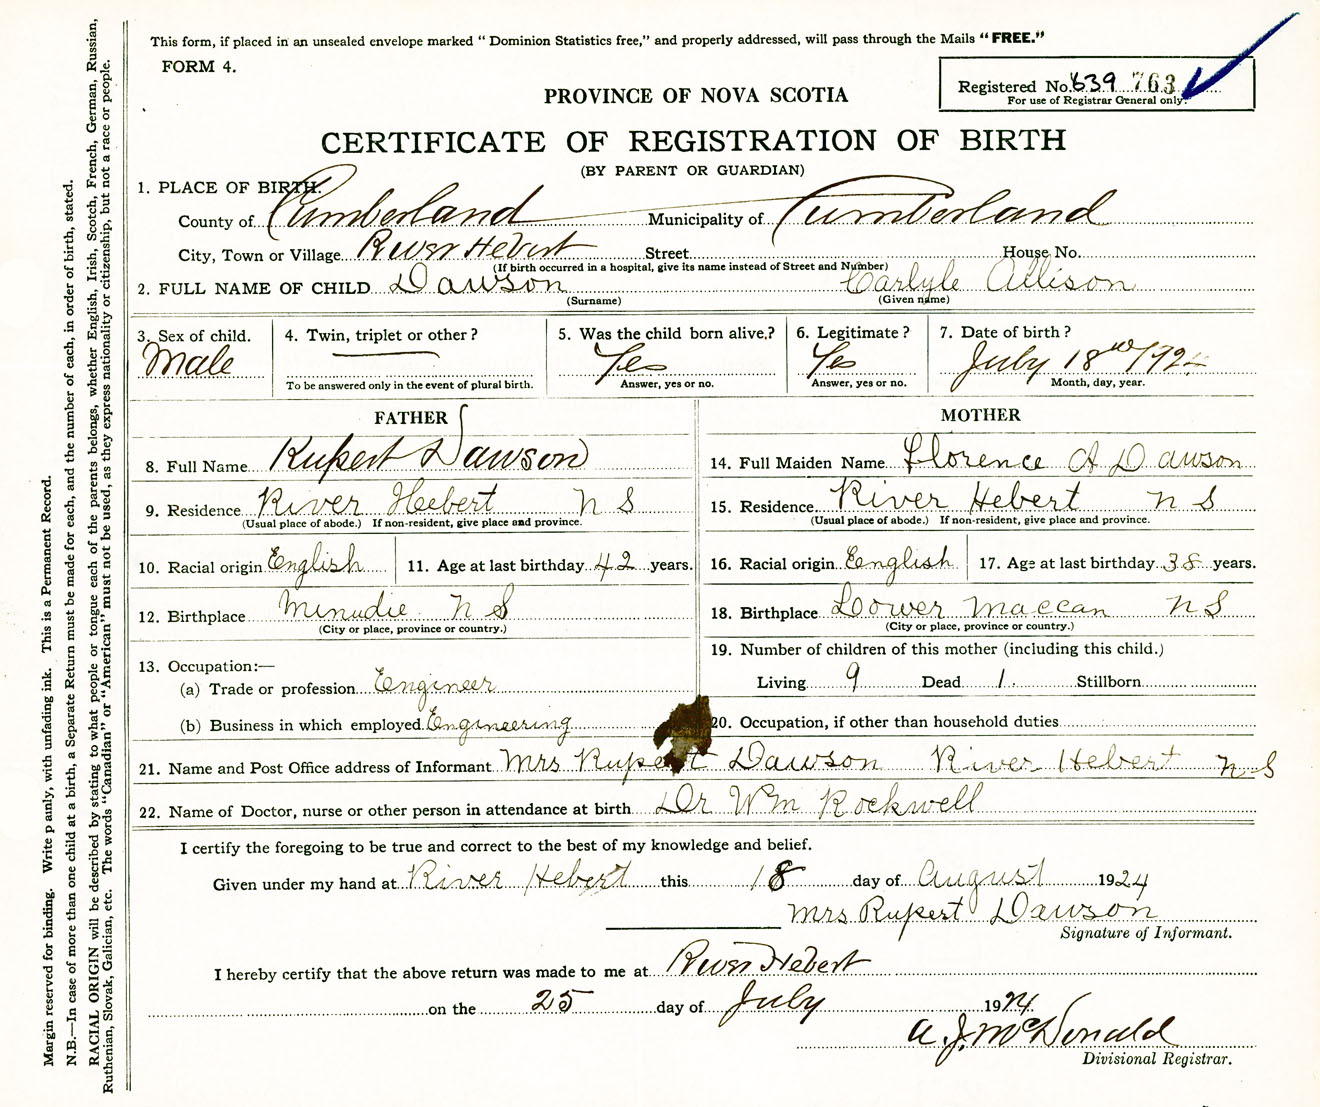 This form, if placed in an unsealed envelope marked “ Dominion Statistics free,” and properly addressed, will pass through the Mails “ FREE.”
FORM 4.
Registered No. 639 763
For use of Registrar General only.
PROVINCE OF NOVA SCOTIA
CERTIFICATE OF REGISTRATION OF BIRTH
(BY PARENT OR GUARDIAN)
1. PLACE OF BIRTH:
County of Cumberland Municipality of Cumberland
City, Town or Village River Hebert Street House No.
(If birth occurred in a hospital, give its name instead of Street and Number)
2. FULL NAME OF CHILD Dawson Carlyle Allison
(Surname) (Given name)
3. Sex of child. 4. Twin, triplet or other ? 5. Was the child born alive.? 6. Legitimate ? 7. Date of birth ?
Male — Yes Yes July 18th 1924
To be answered only in the event of plural birth. Answer, yes or no. Answer, yes or no. Month, day, year.
FATHER MOTHER
8. Full Name Rupert Dawson 14. Full Maiden Name Florence A Dawson
9. Residence River Hebert N S 15. Residence River Hebert N S
(Usual place of abode.) If non-resident, give place and province. (Usual place of abode.) If non-resident, give place and province.
10. Racial origin English 11. Age at last birthday 42 years. 16. Racial origin English 17. Age at last birthday 38 years.
12. Birthplace Minudie N S 18. Birthplace Lower Maccan N S
(City or place, province or country.) (City or place, province or country.)
13. Occupation:— 19. Number of children of this mother (including this child.)
(a) Trade or profession Engineer Living 9 Dead 1. Stillborn
(b) Business in which employed Engineering 20. Occupation, if other than household duties
21. Name and Post Office address of Informant Mrs Rupert Dawson River Hebert N S
22. Name of Doctor, nurse or other person in attendance at birth Dr Wm Rockwell
I certify the foregoing to be true and correct to the best of my knowledge and belief.
Given under my hand at River Hebert this 18 day of August 1924
Mrs Rupert Dawson
Signature of Informant.
I hereby certify that the above return was made to me at River Hebert
on the 25 day of July 1924
A. J. McDonald
Divisional Registrar.
Margin reserved for binding. Write p anly, with unfading ink. This is a Permanent Record.
N.B.—In case of more than one child at a birth, a Separate Return must be made for each, and the number of each, in order of birth, stated.
RACIAL ORIGIN will be described by stating to what people or tongue each of the parents belongs, whether English, Irish, Scotch, French, German, Russian,
Ruthenian, Slovak, Galician, etc. The words “Canadian” or “American” must not be used, as they express nationality or citizenship, but not a race or people.